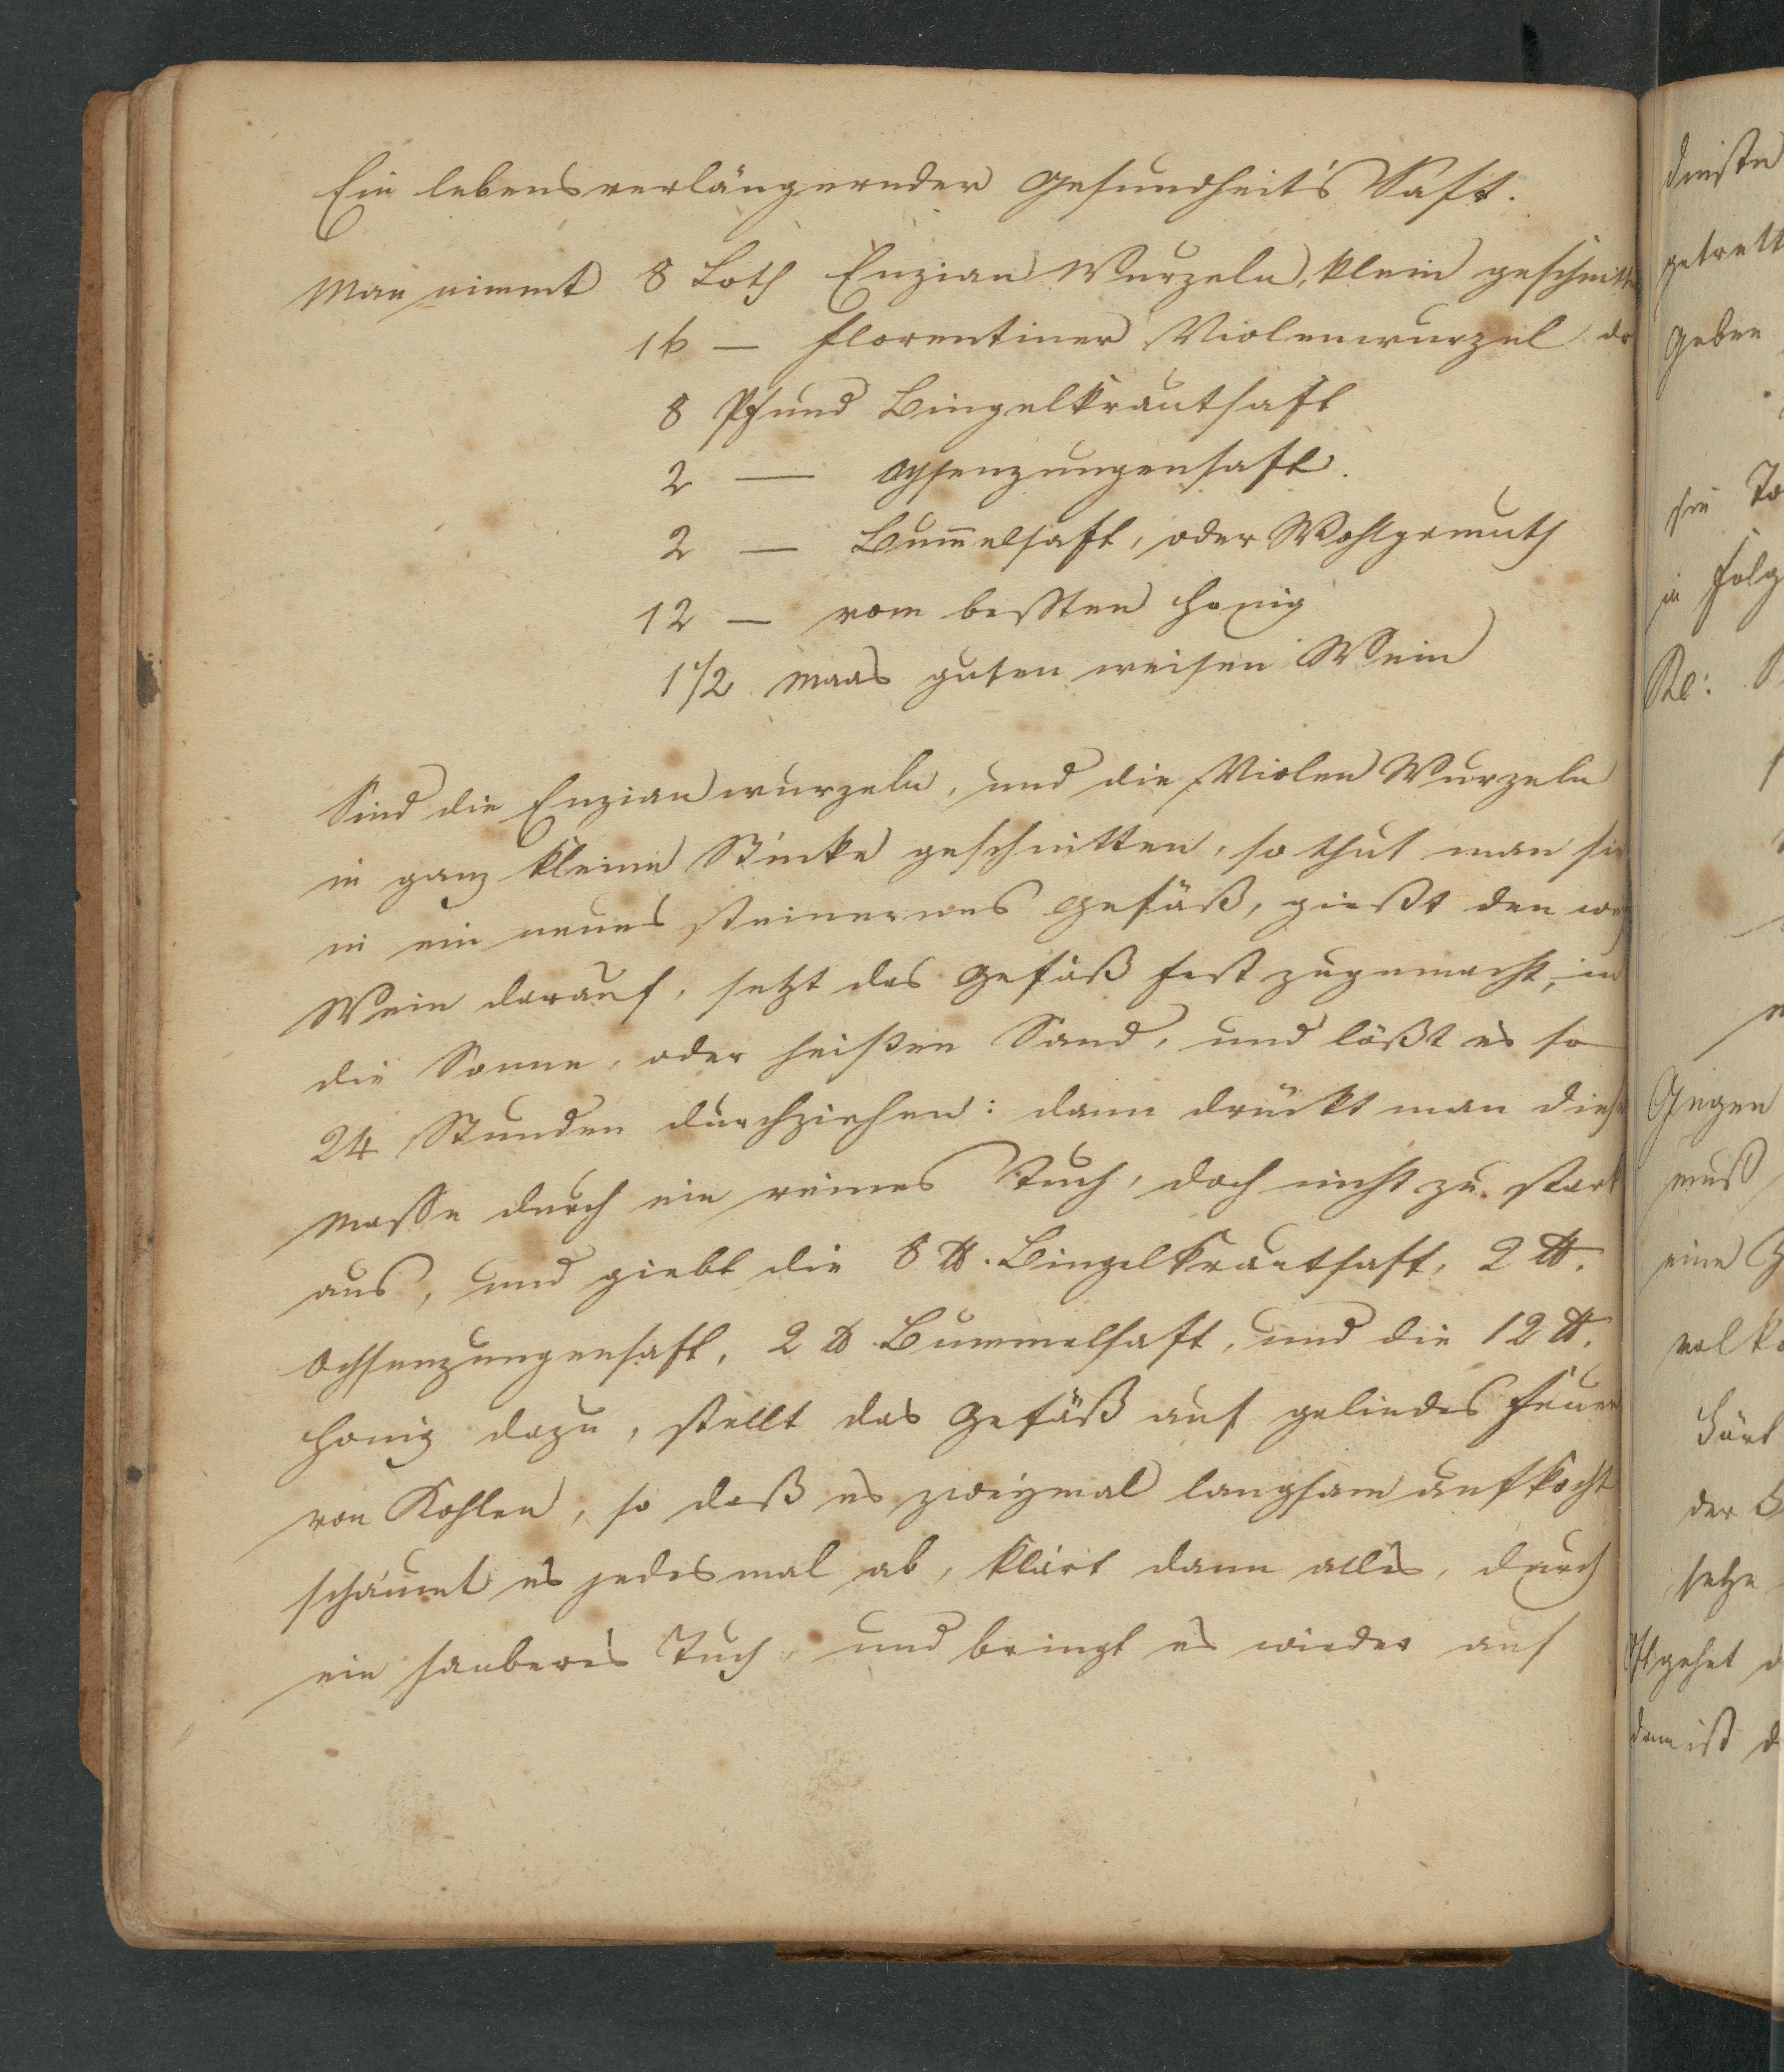 Ein lebensverlängernder Gesundheit's Saft.
Man nimmt 8 Loth Enzian Wurzeln, klein geschnitten
16 — florentiner Violenwurzel do
8 Pfund Bingelkrautsaft
2 — Ochsenzungensaft.
2 — Bum̅elsaft, oder Wohlgemuth
12 — vom besten Honig
1 1/2 Maas guten weisen Wein
Sind die Enzianwurzeln, und die Violen Wurzeln
in ganz kleine Stücke geschnitten, so thut man sie
in ein neues steinernes Gefäß, gießt den
Wein darauf, setzt das Gefäß fest zugemacht, in
die Sonne, oder heißen Sand, und läßt es so
24 Stunden durchziehen: dann drückt man diese
Masse durch ein reines Tuch, doch nicht zu stark
aus, und giebt die 8 ℔. Bingelkrautsaft, 2 ℔.
Ochsenzungensaft, 2 ℔ Bummelsaft, und die 12 ℔.
Honig dazu, stellt das Gefäß auf gelindes Feuer
von Kohlen, so daß es zweymal langsam aufkocht
schäumt es jedesmal ab, klärt dann alles, durch
ein sauberes Tuch, und bringt es wieder auf
dinste
geben
sie
in folg
Re:
Gegen
muß
eine
der
setze
gehet
dann ist